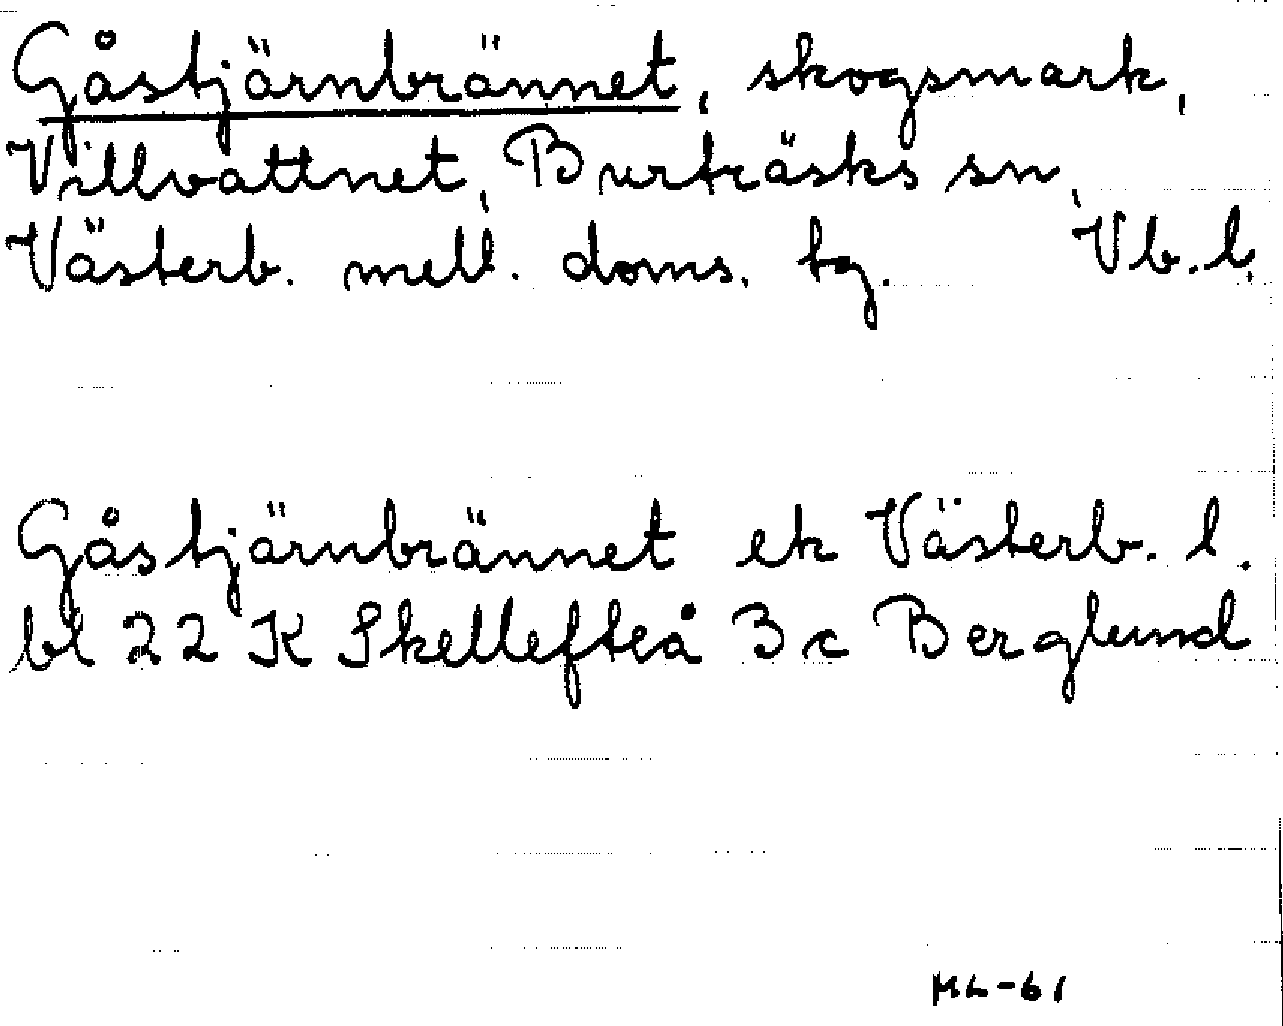 Gåstjärnbrännet, skogsmark,
Villvattnet, Burträsks sn,
Västerb. mell. doms. tg. Vb. l.
Gåstjärnbrännet ek Västerb. l.
bl 22 K Skellefteå 3 c Berglund
ML-61